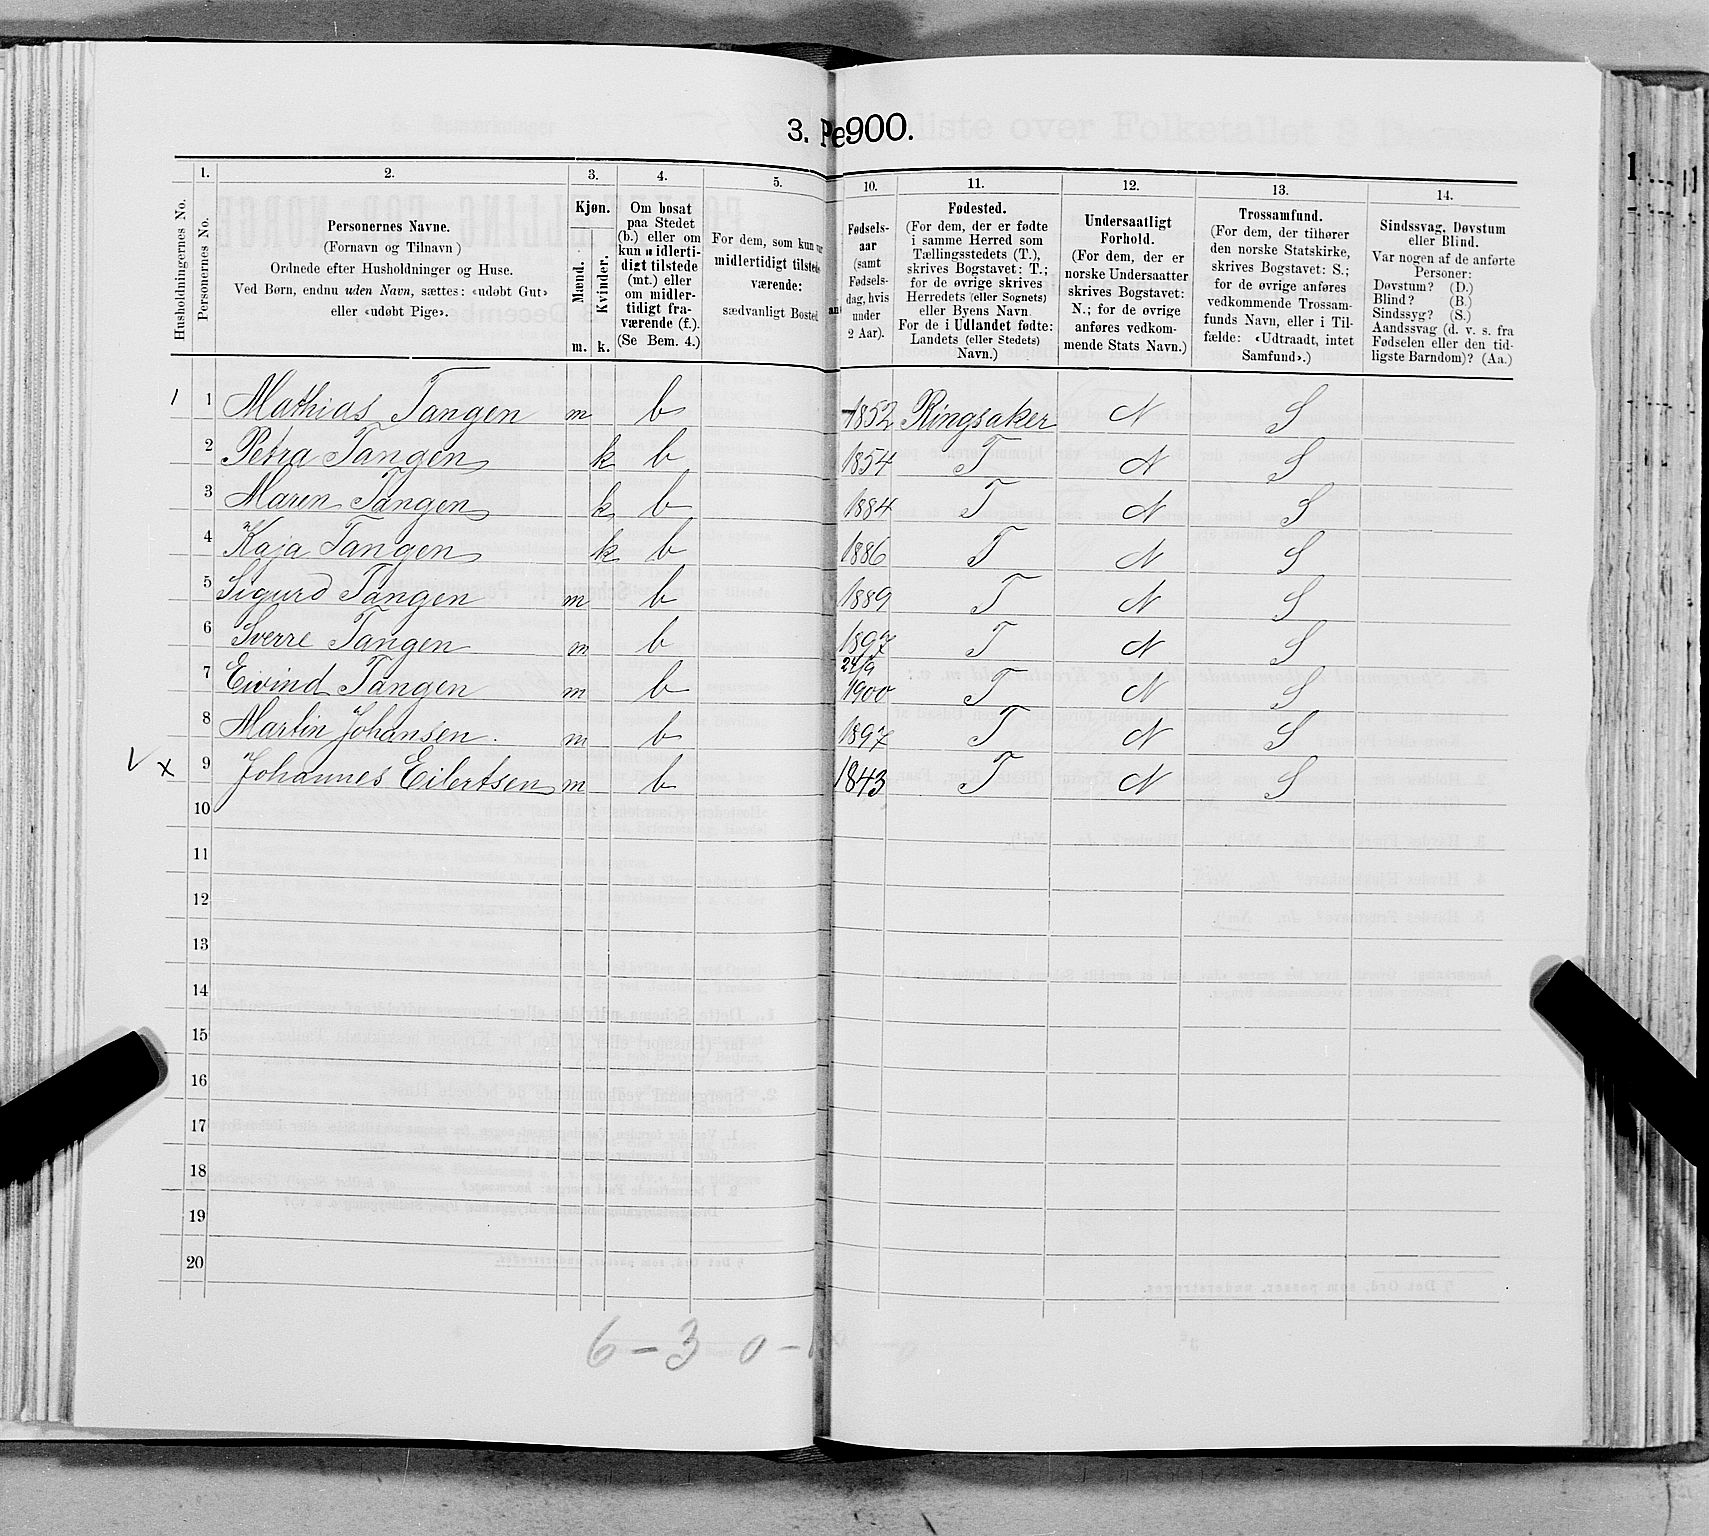 3. Pe900.
1. 2. 3. 4. 5. 10. 11. 12. 13. 14.
Husholdningernes No.
Personernes No.
Personernes Navne.
(Fornavn og Tilnavn)
Ordnede efter Husholdninger og Huse.
Ved Børn, endnu uden Navn, sættes: «udøbt Gut»
eller «udøbt Pige».
Kjøn.
Mænd.
Kvinder.
m. k.
Om bosat
paa Stedet
(b.) eller om
kun midlerti-
digt tilstede
(mt.) eller
om midler-
tidigt fra-
værende (f.).
(Se Bem. 4.)
For dem, som kun
midlertidigt tilstede
værende:
sædvanligt Bosted
Fødsels-
aar
(samt
Fødsels-
dag, hvis
under
2 Aar).
Fødested.
(For dem, der er fødte
i samme Herred som
Tællingsstedets (T.),
skrives Bogstavet: T.;
for de øvrige skrives
Herredets (eller Sognets)
eller Byens Navn.
For de i Udlandet fødte:
Landets (eller Stedets)
Navn.)
Undersaatligt
Forhold.
(For dem, der er
norske Undersaatter
skrives Bogstavet:
N.; for de øvrige
anføres vedkom-
mende Stats Navn.)
Trossamfund.
(For dem, der tilhører
den norske Statskirke,
skrives Bogstavet: S.;
for de øvrige anføres
vedkommende Trossam-
funds Navn, eller i Til-
fælde: «Udtraadt, intet
Samfund».)
Sindssvag, Døvstum
eller Blind.
Var nogen af de anførte
Personer:
Døvstum? (D.)
Blind? (B.)
Sindssyg? (S.)
Aandssvag (d. v. s. fra
Fødselen eller den tid-
ligste Barndom)? (Aa.)
1 1 Mathias Tangen m b 1852 Ringsaker N S
2 Petra Tangen k b 1854 T N S
3 Maren Tangen k b 1884 T N S
4 Kaja Tangen k b 1886 T N S
5 Sigurd Tangen m b 1889 T N S
6 Sverre Tangen m b 1897 T N S
7 Eivind Tangen m b 24/9 1900 T N S
8 Martin Johansen. m b 1897 T N S
V x 9 Johannes Eilertsen m b 1843 T N S
10
11
12
13
14
15
16
17
18
19
20
6 – 3 0 –